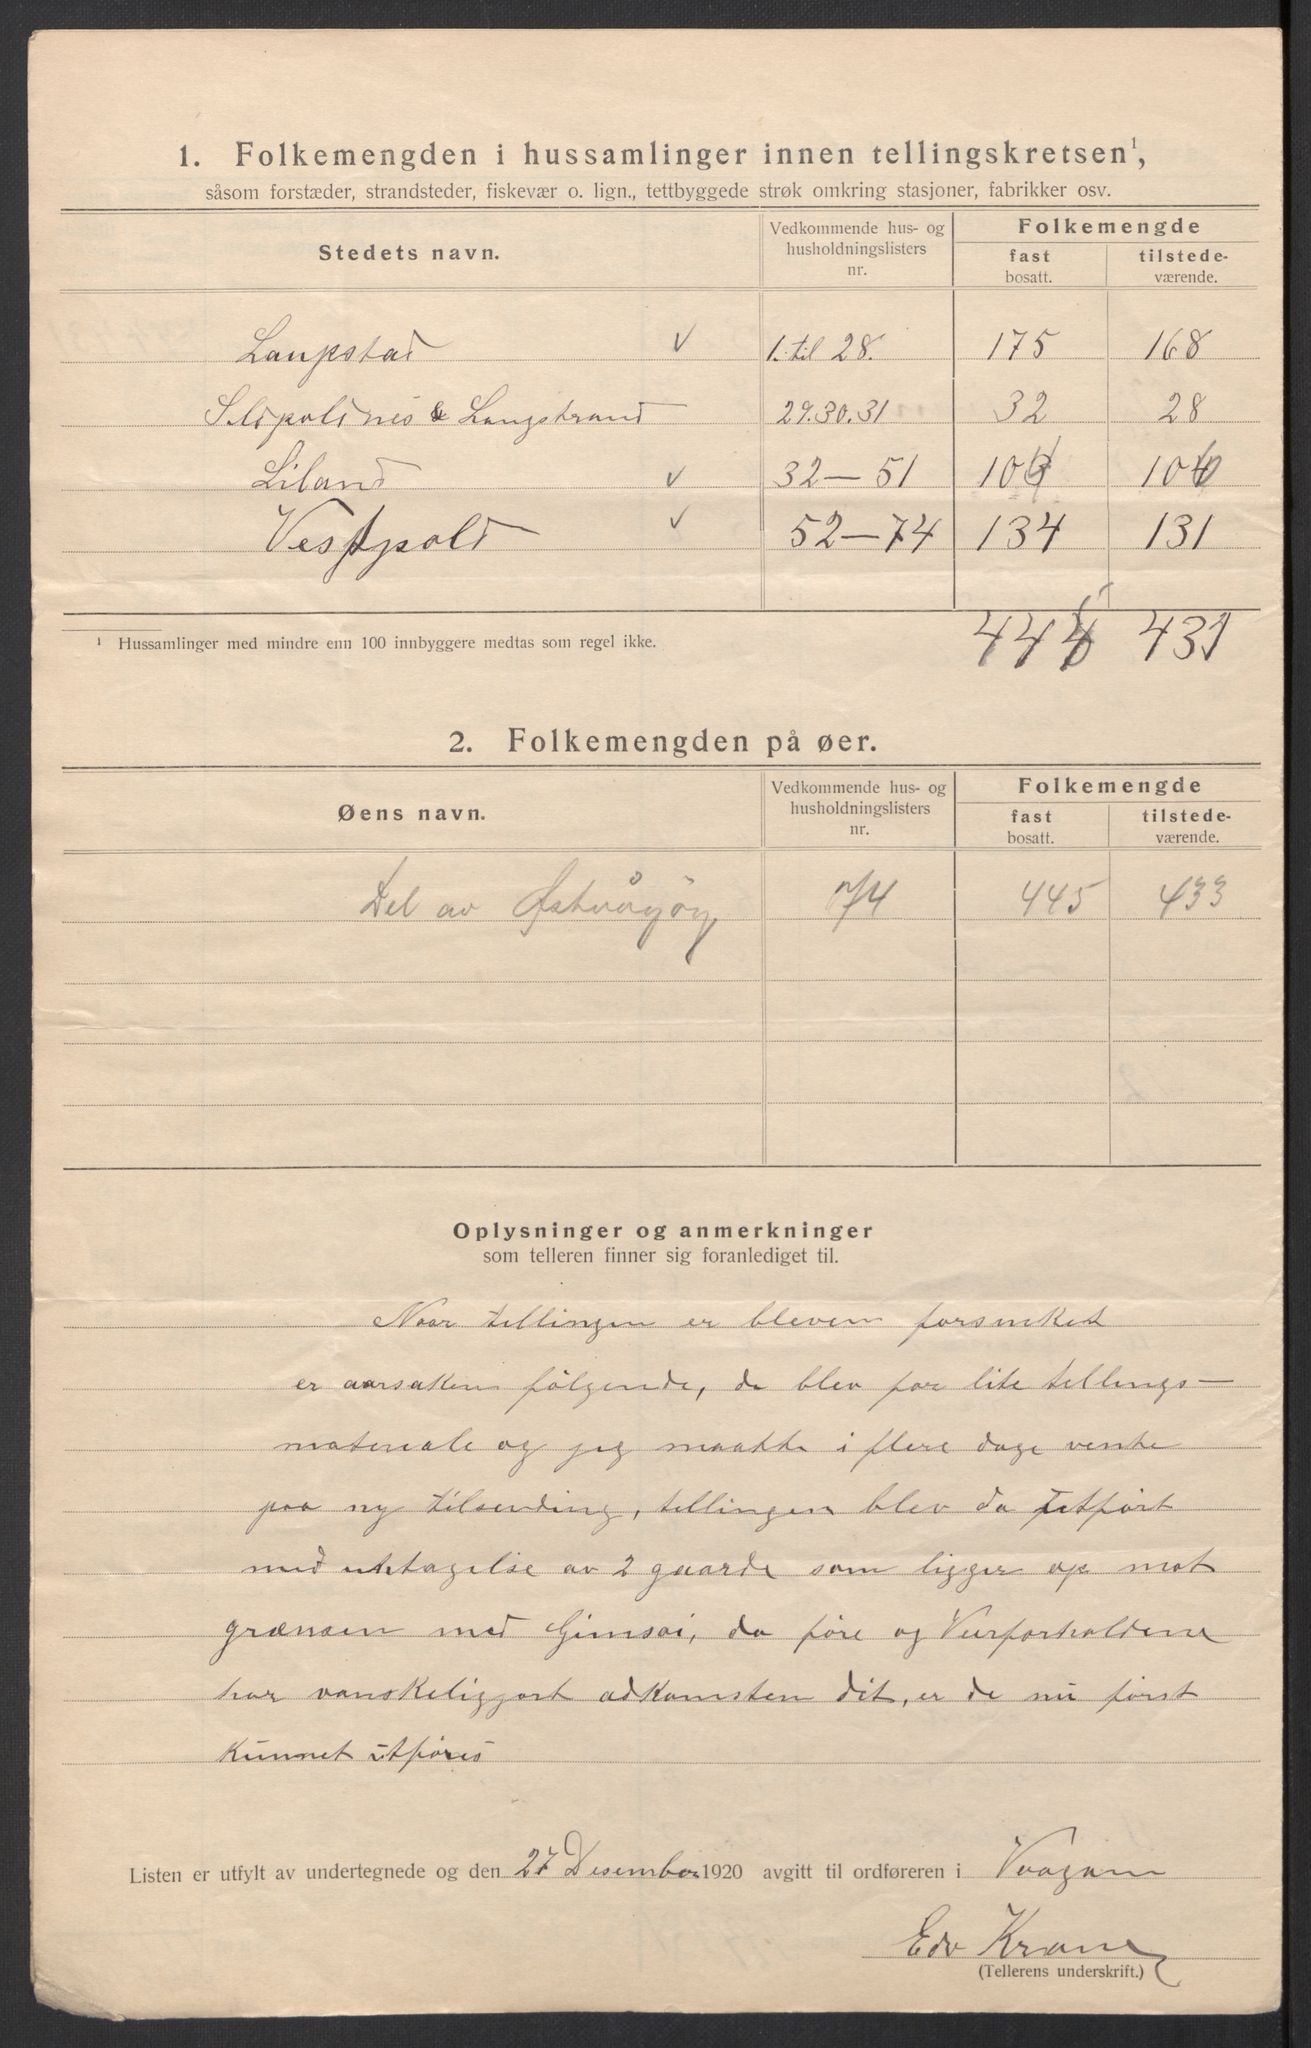 1. Folkemengden i hussamlinger innen tellingskretsen¹,
såsom forstæder, strandsteder, fiskevær o. lign., tettbyggede strøk omkring stasjoner, fabrikker osv.
Stedets navn. Vedkommende hus- og husholdningslisters nr. Folkemengde
fast bosatt. tilstede-værende.
Laupstad ✓ 1. til 28. 175 168
& Langstrand 29.30.31 32 28
Liland ✓ 32–51
Vestpold ✓ 52–74 134 131
431
¹ Hussamlinger med mindre enn 100 innbyggere medtas som regel ikke.
2. Folkemengden på øer.
Øens navn. Vedkommende hus- og husholdningslisters nr. Folkemengde
fast bosatt. tilstede-værende.
Del av Østvågøy 74 445 433
Oplysninger og anmerkninger
som telleren finner sig foranlediget til.
Naar tellingen er bleven forsinket
er aarsaken følgende, de blev for lite tellings-
materiale og jeg maatte i flere dage vente
paa ny tilsending, tellingen blev da utført
med undtagelse av 2 gaarde som ligger op mot
grænsen med Gimsøi, da føre og Veirforholdene
har vanskeliggjort adkomsten dit, er de nu først
kunnet utføres
Listen er utfylt av undertegnede og den 27 Desember 1920 avgitt til ordføreren i Vaagan
Edv Krane
(Tellerens underskrift.)